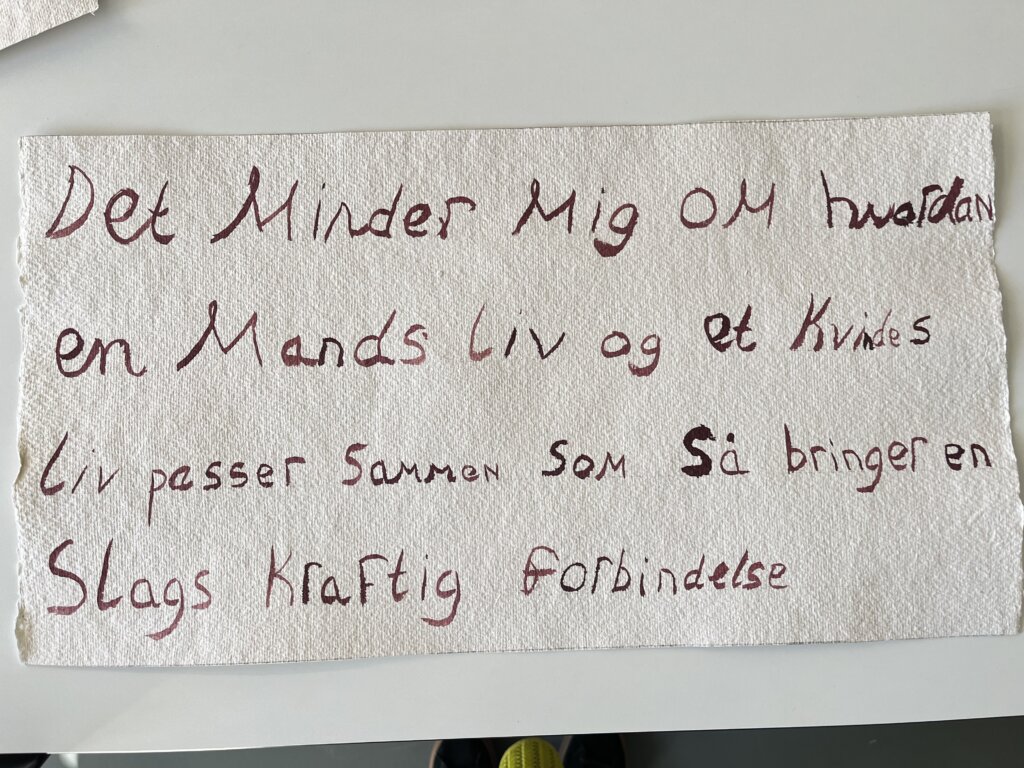 Det Minder Mig OM hvordan
en Mands Liv og et Kvindes
Liv passer Sammen Som Så bringer en
Slags Kraftig forbindelse